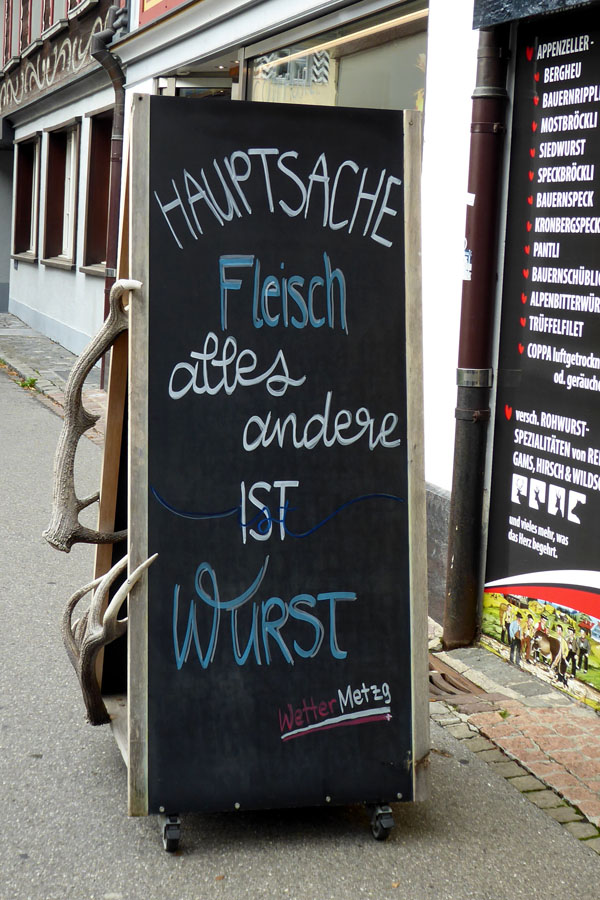 HAUPTSACHE
Fleisch
alles
andere
IST
WURST
WetterMetzg
APPENZELLER -
BERGHEU
BAUERNRIPPL
MOSTBRÖCKLI
SIEDWURST
SPECKBRÖCKLI
BAUERNSPECK
KRONBERGSPECK
PANTLI
BAUERNSCHÜBLI
ALPENBITTERWÜR
TRÜFFELFILET
COPPA luftgetrockn
od. geräuche
versch. ROHWURST-
SPEZIALITÄTEN von RE
GAMS, HIRSCH & WILDSC
und vieles mehr, was
das Herz begehrt.